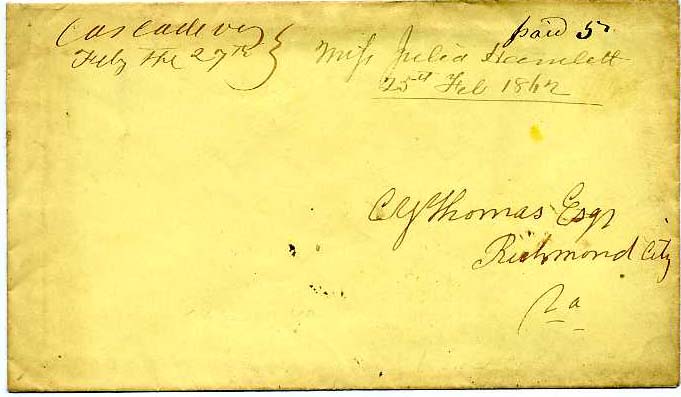 Cascade va
Feby the 27th
paid 5
Miss Julia Hamlett
25th Feb 1862
C Y Thomas Esqr
Richmond City
Va